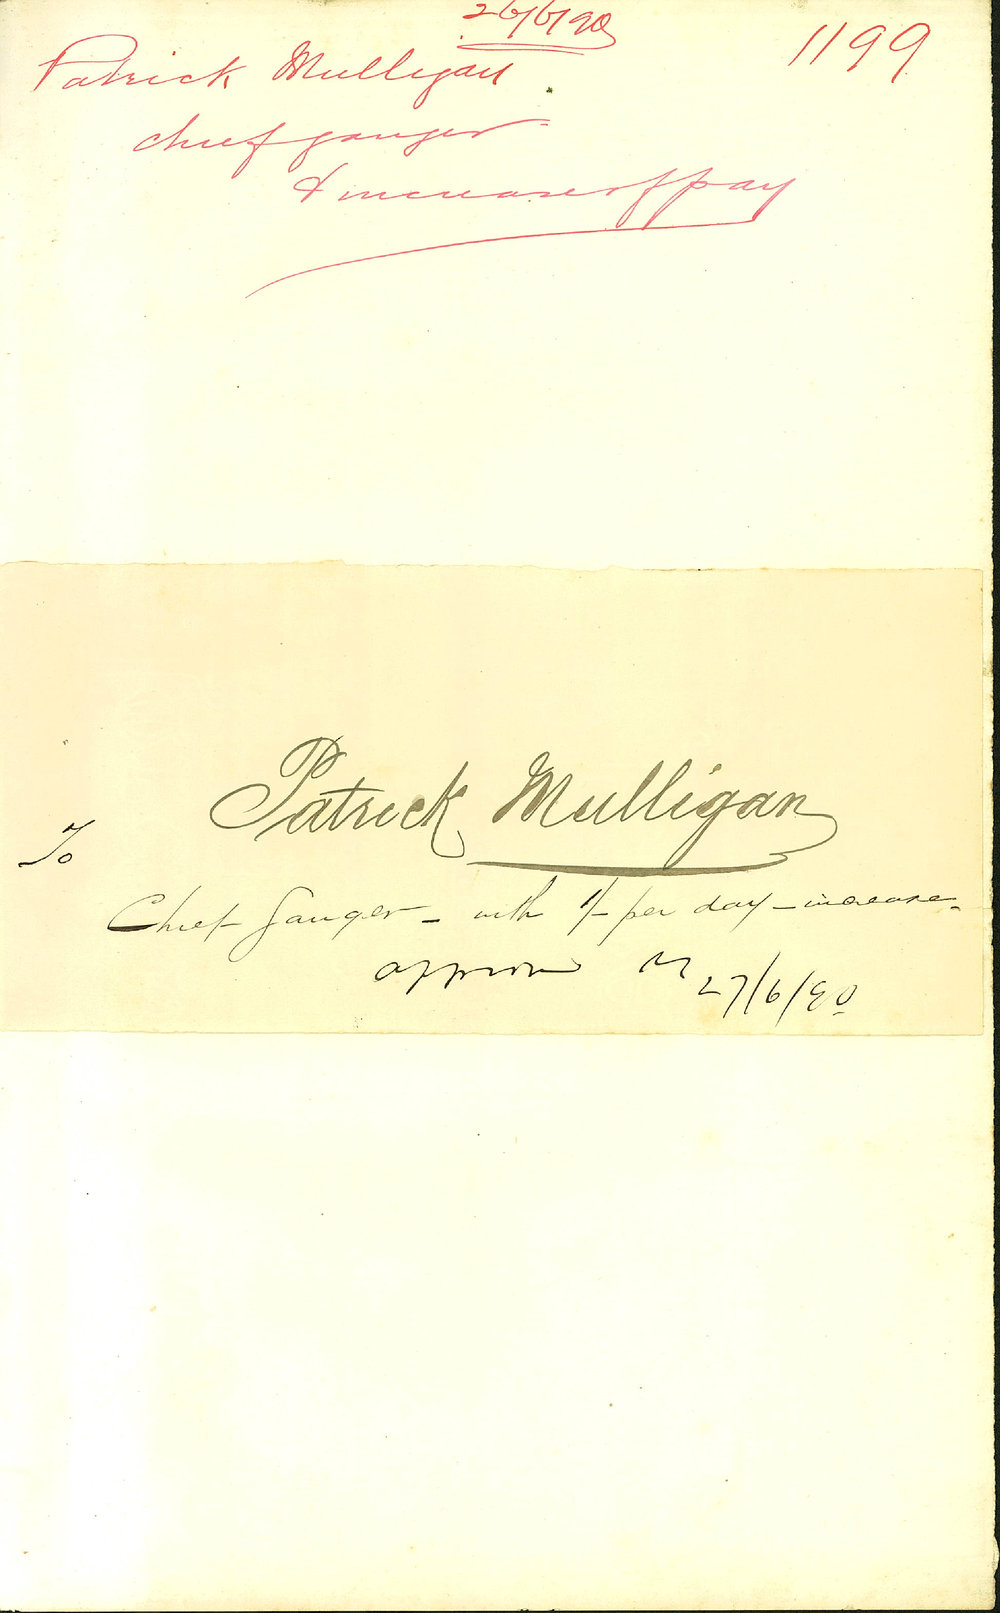 26/6/90
1199
Patrick Mulligan
chief ganger
& increase of pay
Patrick Mulligan
To
Chief Ganger - with 1/- per day - increase.
approved
27/6/90